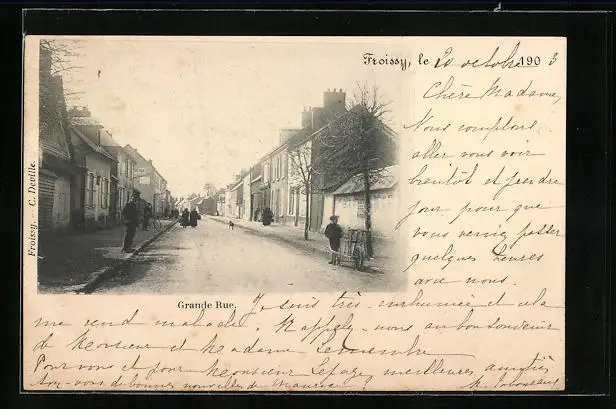 Froissy, le 20 octobre 1903
Chère Madame,
Nous comptons
aller vous voir
bientôt et prendre
jour pour que
vous veniez passer
quelques heures
avec nous.
Froissy. — C. Deville.
Grande Rue.
Je suis très enrhumée et cela
me rend malade. Rappelez-nous au bon souvenir
de Monsieur et Madame
Pour vous et pour Monsieur meilleures amitiés
bonnes nouvelles de Maurice ?